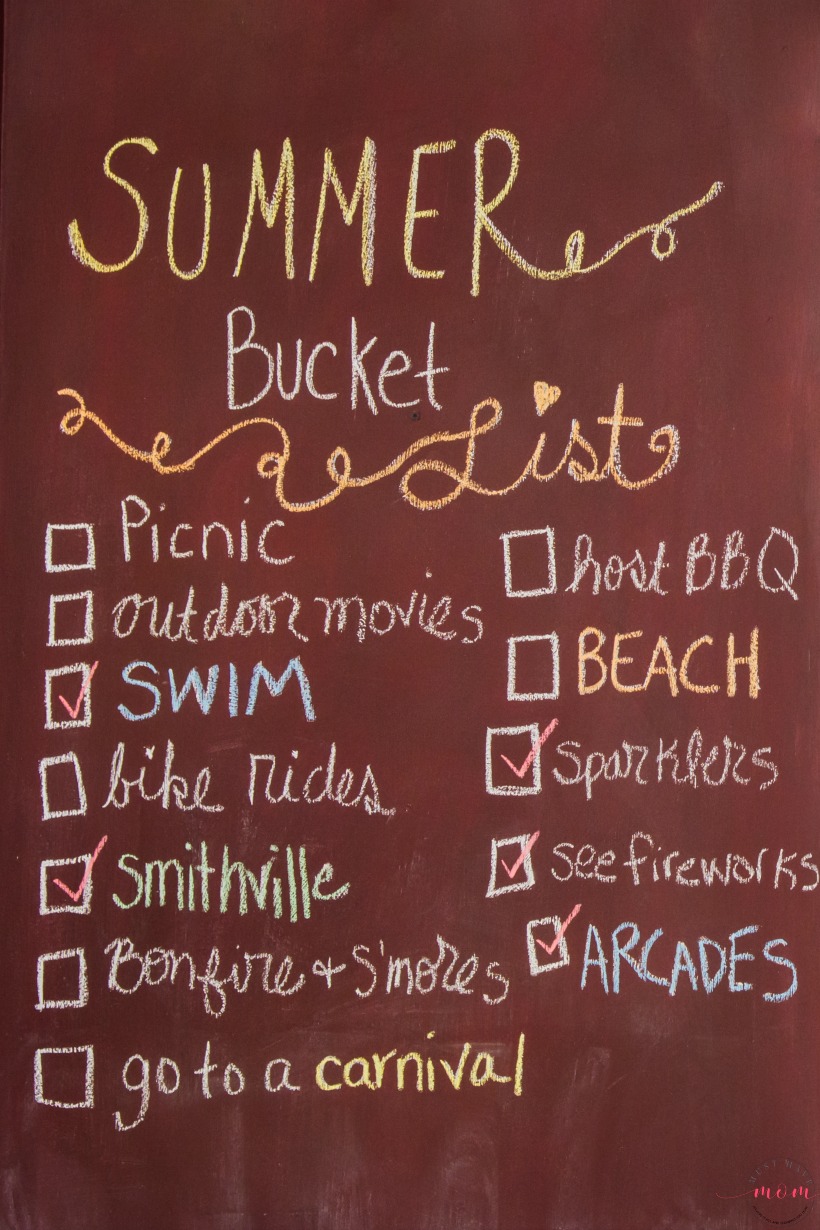 SUMMER
Bucket
List
Picnic
outdoor movies
SWIM
bike rides
Smithville
Bonfire + S'mores
go to a carnival
host BBQ
BEACH
sparklers
see fireworks
ARCADES
mom